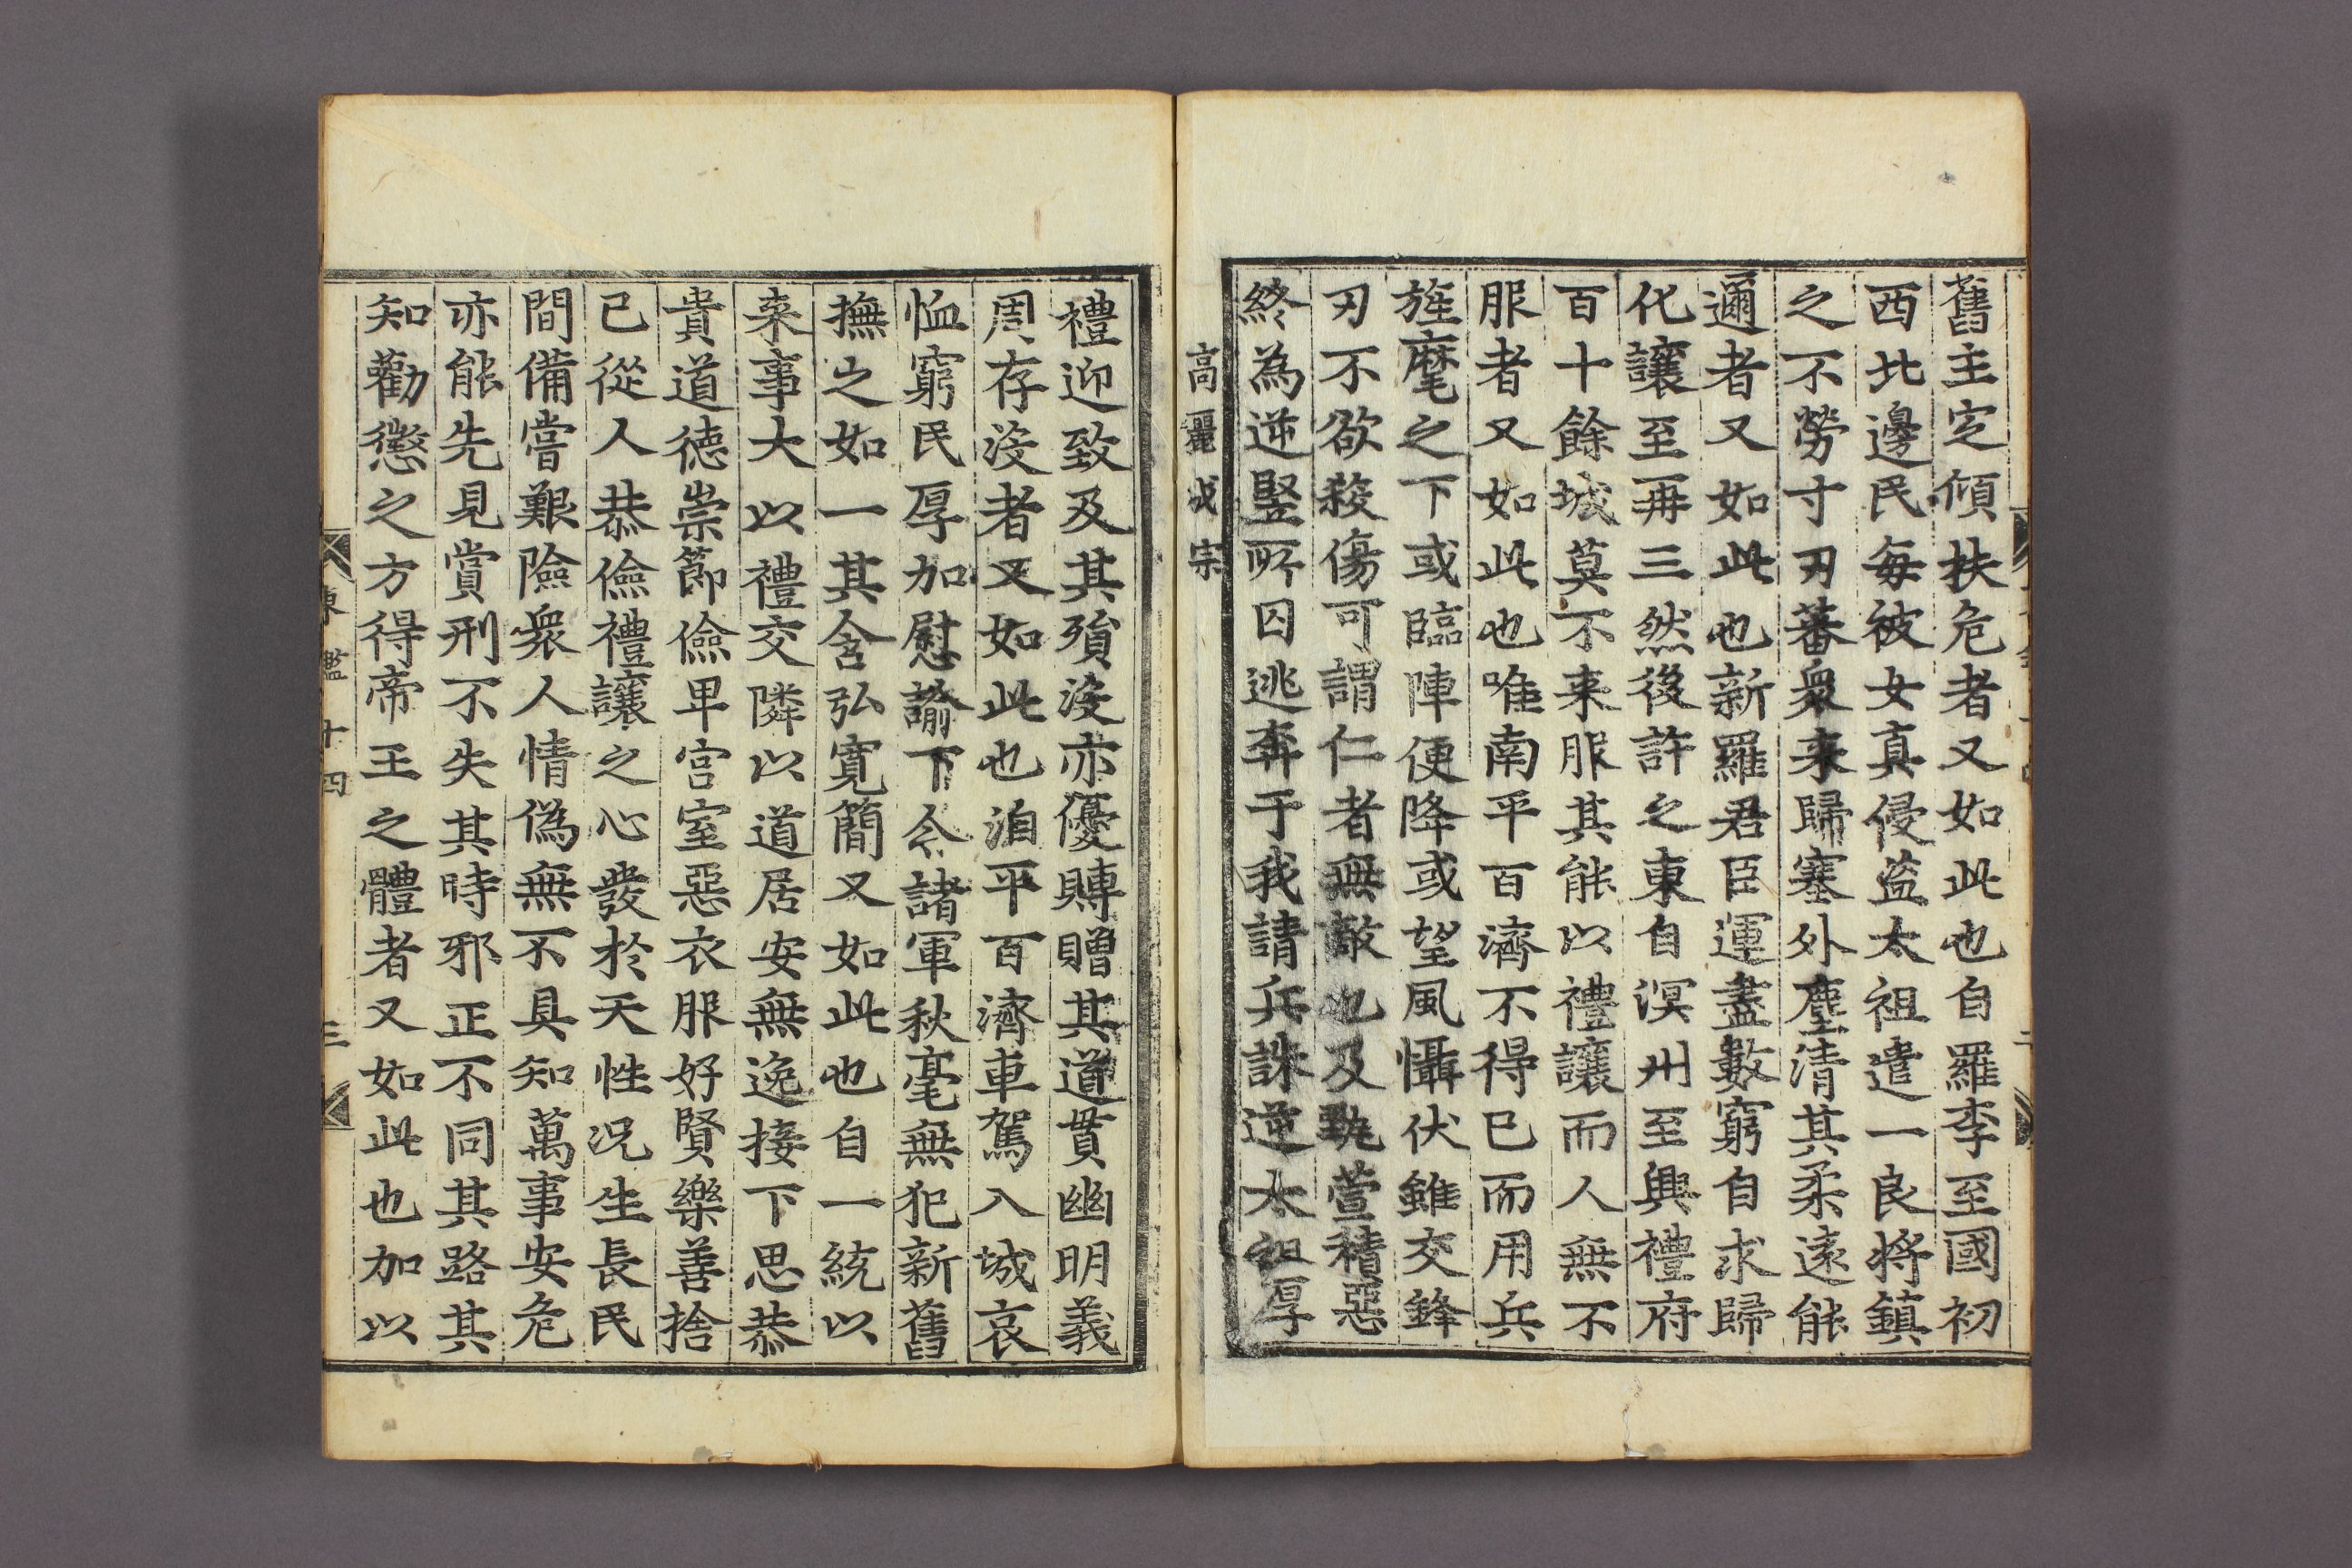 舊主定傾扶危者又如此也自羅李至國初
西北邊民每被女真侵盜太祖遣一良將鎮
之不勞寸刃蕃衆来歸塞外塵清其柔遠能
邇者又如此也新羅君臣運盡數窮自求歸
化讓至再三然後許之東自溟州至興禮府
百十餘城莫不来服其能以禮讓而人無不
服者又如此也唯南平百濟不得已而用兵
旌麾之下或臨陣便降或望風懾伏雖交鋒
刃不欲殺傷可謂仁者無敵也及甄萱稔惡
終為逆竪所囚逃奔于我請兵誅逆太祖厚
高麗成宗
禮迎致及其殞沒亦優賻贈其道貫幽明義
周存沒者又如此也洎平百濟車駕入城哀
恤窮民厚加慰諭下令諸軍秋毫無犯新舊
撫之如一其含弘寬簡又如此也自一統以
来事大以禮交隣以道居安無逸接下思恭
貴道德崇節儉卑宮室惡衣服好賢樂善捨
已從人恭儉禮讓之心發於天性况生長民
間備嘗艱險衆人情僞無不具知萬事安危
亦能先見賞刑不失其時邪正不同其路其
知勸懲之方得帝王之體者又如此也加以
東鑑十四
三